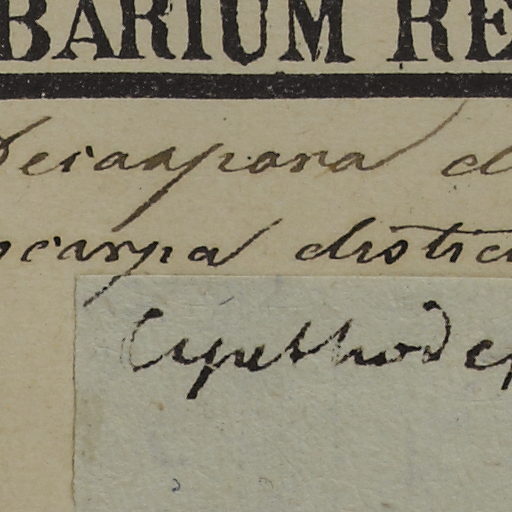 BARIUM RE
Decaspora di
ocarpa distic
Cyathodep